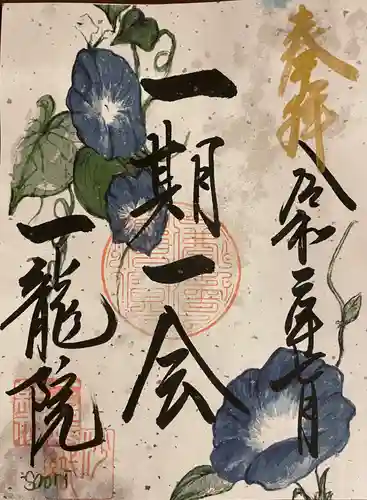 奉拝
令和二年七月
一期一会
一龍院